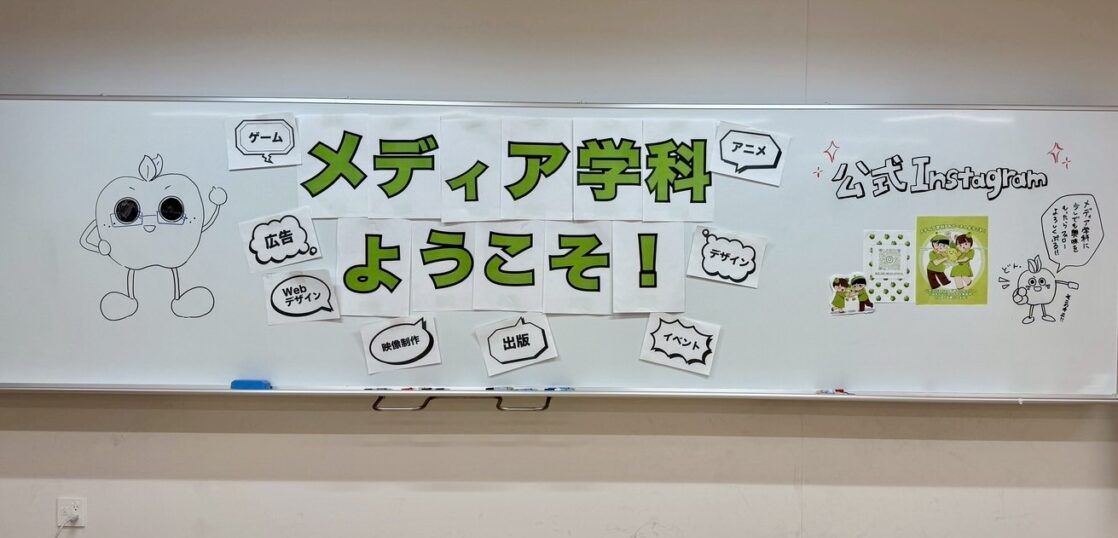 ゲーム
メディア学科
アニメ
広告
ようこそ！
デザイン
Web
デザイン
映像制作
出版
イベント
公式Instagram
メディア学科に
少しでも興味を
もったらフォロー
よろしくぷる!!